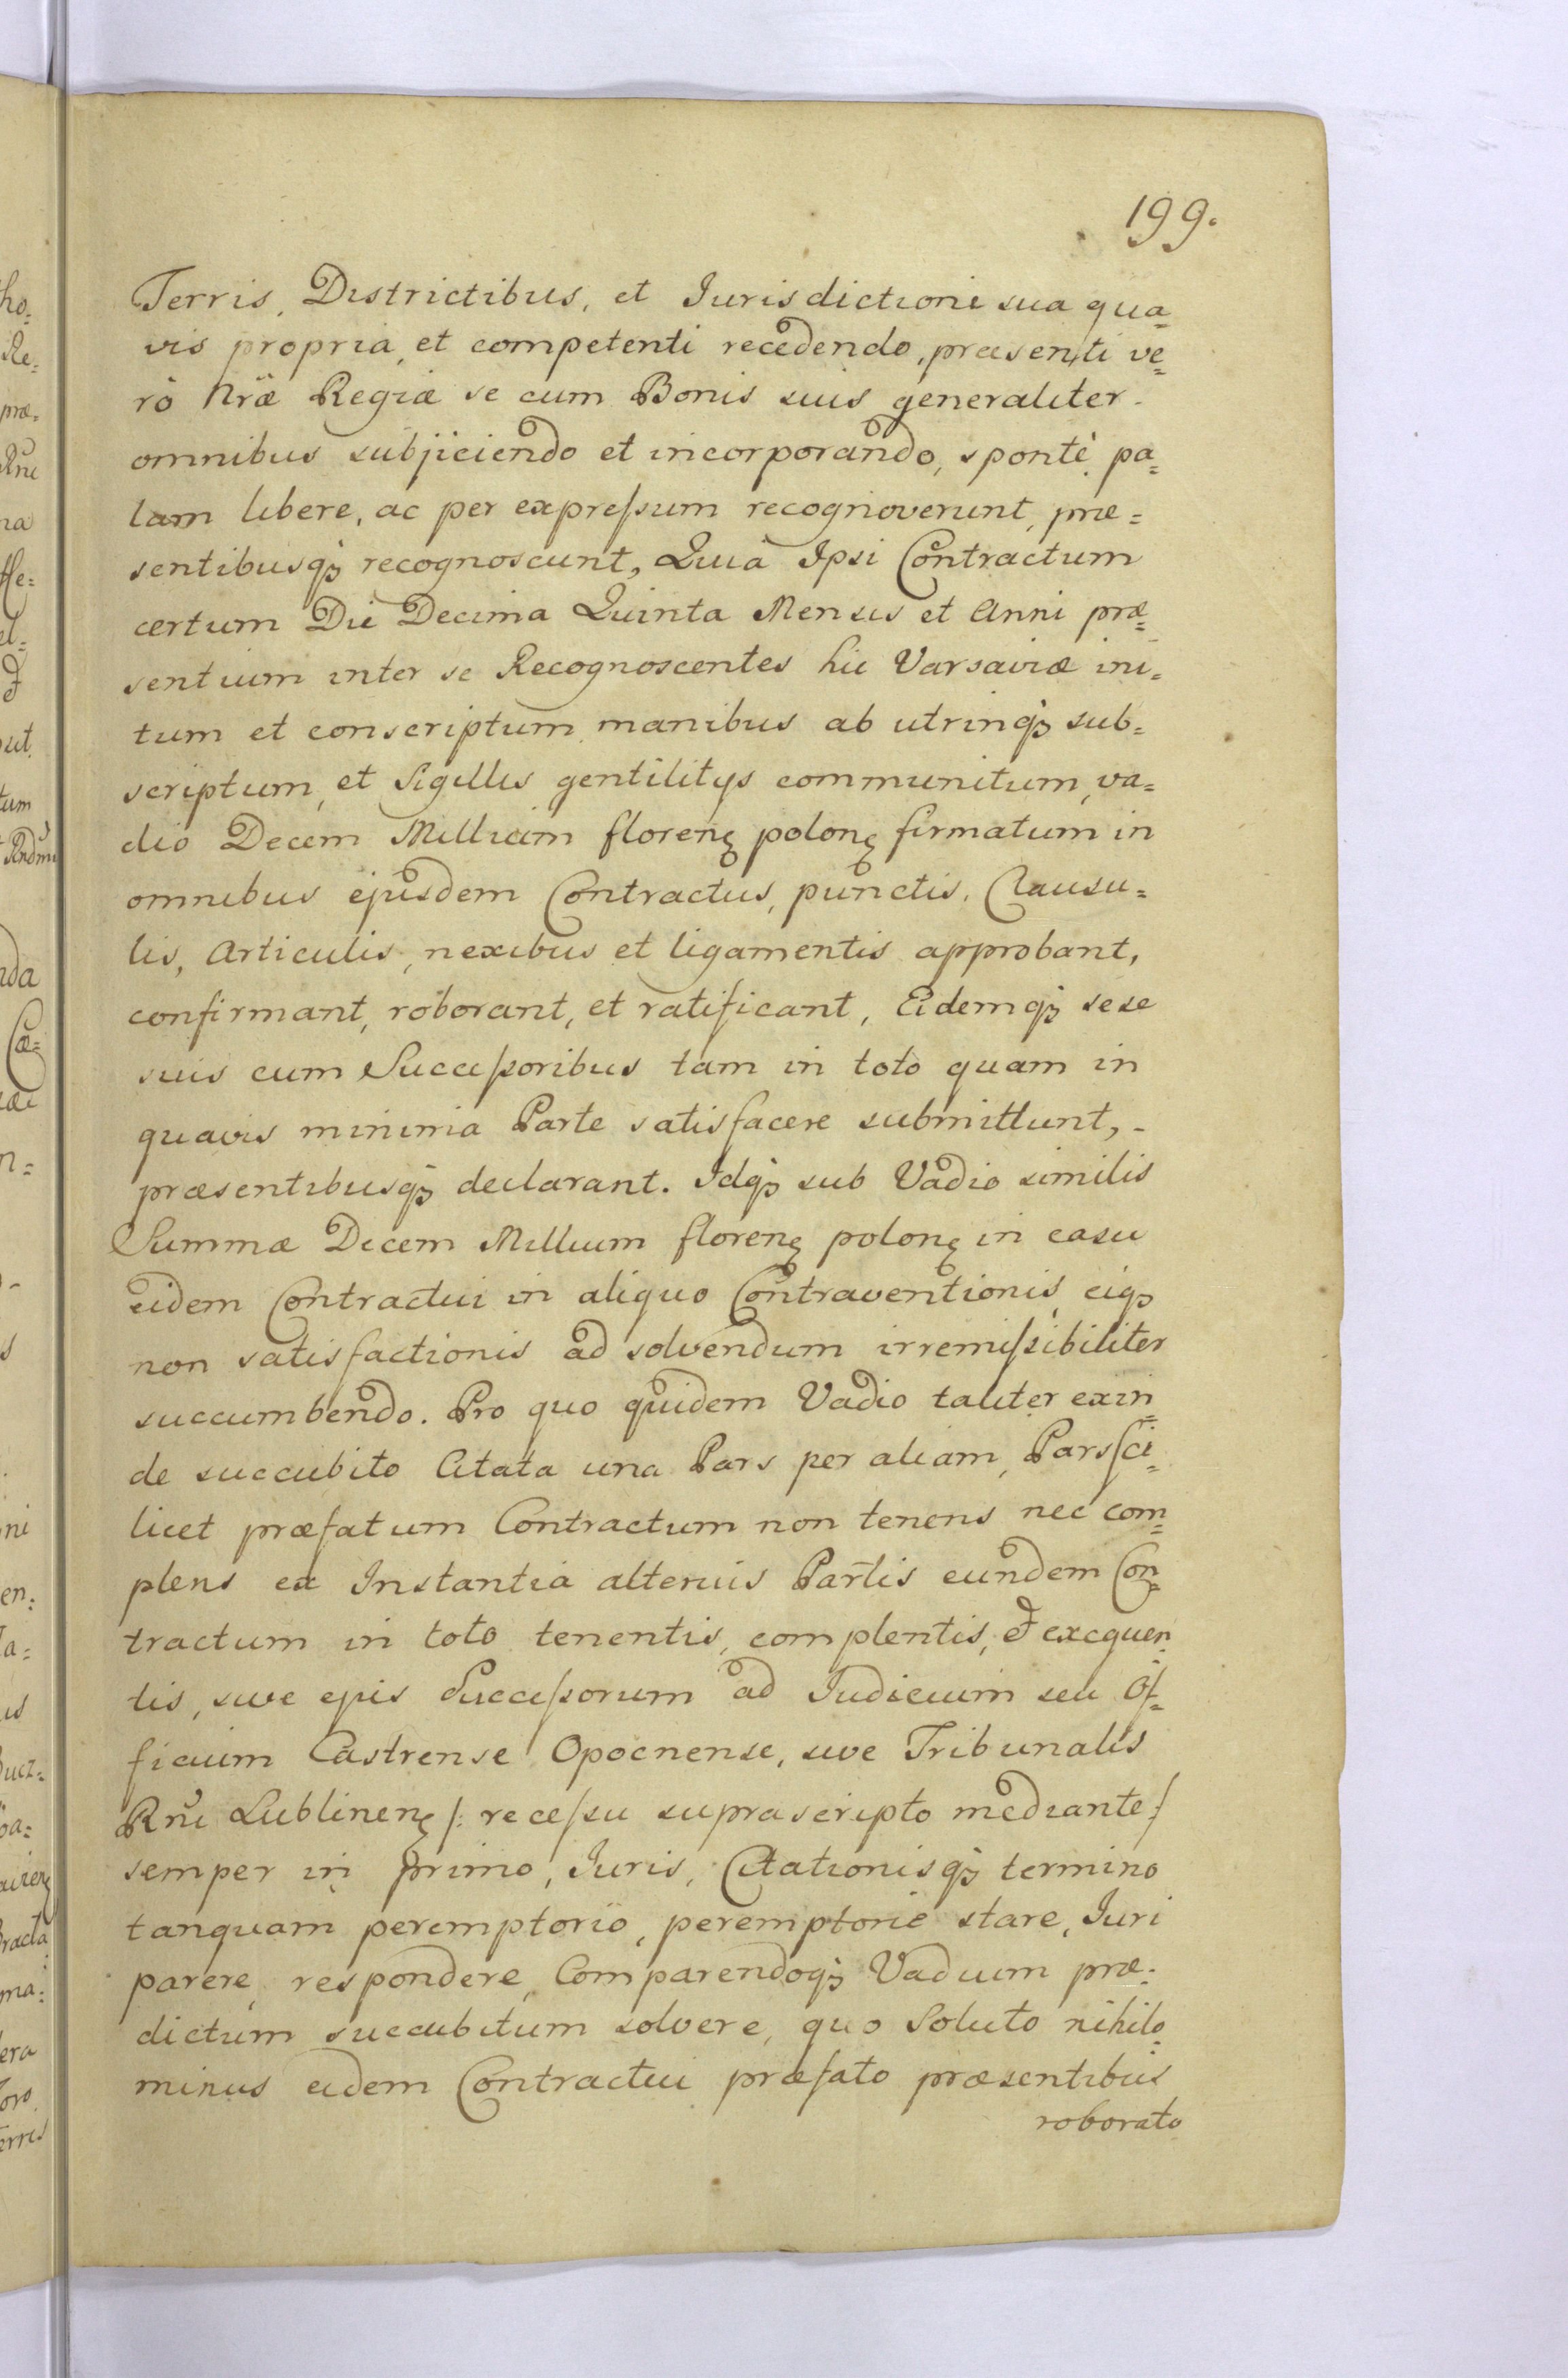 199.
Terris, Districtibus, et Jurisdictioni sua qua=
vis propria, et competenti recedendo, præsenti ve=
rò Nræ Regiæ se cum Bonis suis generaliter
omnibus subjiciendo et incorporando, spontè pa=
lam libere, ac per expreſsum recognoverunt, præ=
sentibusqȝ recognoscunt, Quia Ipsi Contractum
certum Die Decima Quinta Mensis et Anni præ=
sentium inter se Recognoscentes hic Varsaviæ ini=
tum et conscriptum, manibus ab utrinqȝ sub=
scriptum, et Sigillis gentilitÿs communitum, va=
dio Decem Millium florenę polonę firmatum in
omnibus ejusdem Contractus, punctis, Clausu=
lis, Articulis, nexibus et ligamentis approbant,
confirmant, roborant, et ratificant, Eidemqȝ sese
suis cum Succeſsoribus tam in toto quam in
quavis minima Parte satisfacere submittunt, -
præsentibusqȝ declarant. Idqȝ sub Vadio similis
Summæ Decem Millium florenę polonę in casu
eidem Contractui in aliquo Contraventionis, eiqȝ
non satisfactionis ad solvendum irremiſsibiliter
succumbendo. Pro quo quidem Vadio taliter exin=
de succubito Citata una Pars per aliam, Pars ſci=
licet præfatum Contractum non tenens nec com=
plens ex Instantia alterius Partis eundem Con=
tractum in toto tenentis, complentis, & exequen=
tis, sive ejus Succeſsorum ad Judicium seu Of=
ficium Castrense Opocnense, sive Tribunalis
Rñi Lublinenę /: receſsu suprascripto mediante :/
semper in primo, Juris, Citationisqȝ termino
tanquam peremptorio, peremptorie stare, Juri
parere, respondere, Comparendoqȝ Vadium præ=
dictum succubitum solvere, quo Soluto nihilo=
minus eidem Contractui præfato præsentibus
roborato